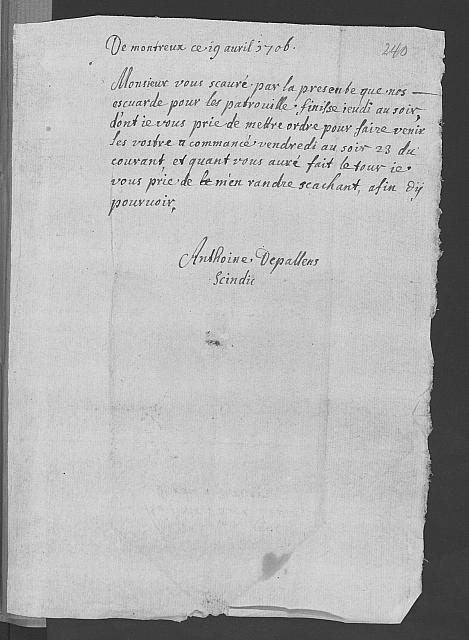 De montreux ce 19 avril 1706.
240
Monsieur vous scauré par la presente que nos
oscuarde pour les patrouille finisse jeudi au soir,
dont ie vous prie de mettre ordre pour faire venir
les vostre a commancé vendredi au soir 23 du
courant et quant vous auré fait le tour ie
vous prie de le m'en randre scachant, afin d'ÿ
pourvoir,
Anthoine Depallens
Scindic